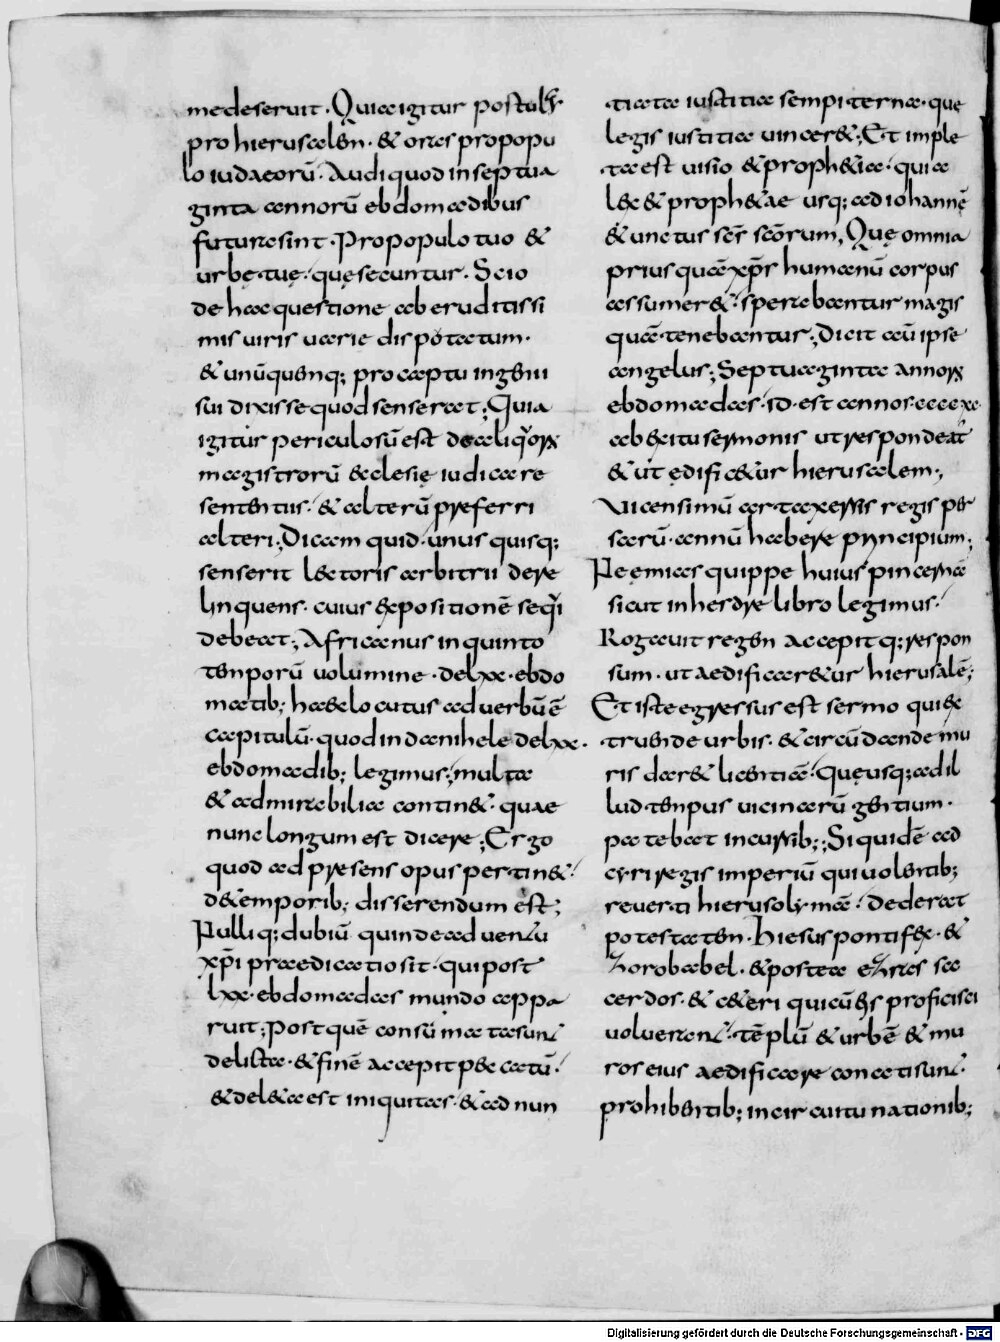 me deseruit · Quia igitur postulas
pro hierusalem · & oras pro popu
lo iudaeorū · Audi quod in septua
ginta annorū ebdomadibus
futura sint · Pro populo tuo &
urbe tue · que secuntur · Scio
de hac questione ab eruditissi
mis viris varie disputatum ·
& unūquemq; pro captu ingenii
sui dixisse quod senserat ; Quia
igitur periculosū est de aliquorꝝ
magistrorū ęclesię iudicare
sententiis · & alterū preferri
alteri ; Dicam quid unus quisq;
senserit lectoris arbitrii dere
linquens · cuius expositionē sequi
debeat ; Africanus in quinto
temporū volumine · de lxx · ebdo
matib; haec locutus ad verbū ē
Capitulū · quod in danihele de lxx ·
ebdomadib; legimus ; multa
& admirabilia contin& · quae
nunc longum est dicere ; Ergo
quod ad presens opus pertin& ·
de temporib; disserendum est ;
Nulliq; dubiū quin de adventu
xp̄i praedicatio sit · qui post
lxx · ebdomadas mundo appa
ruit ; Post quē consūmata sunt
delicta · & finē accepit peccatū ·
& deleta est iniquitas · & adnun
tiata iustitia sempiterna · que
legis iustitia vincer& ; Et imple
ta est visio & proph&ia · quia
lex & proph&ae usq; ad iohannē
& unctus scs̄ scōrum, Quę omnia
prius quā xp̄s humanū corpus
assumer& · sperabantur magis
quā tenebantur ; Dicit aū ipse
angelus ; Septuaginta annorꝝ
ebdomadas · id est annos · ccccxc ·
ab exitu sermonis ut respondeat̄
& ut ędific&ur hierusalem ;
Vicensimū artaxersis regis per
sarū · annū habere principium ;
Neemias quippe huius pincerna
sicut in hesdre libro legimus ·
Rogavit regem accepitq; respon
sum · ut aedificar&ur hierusalē ;
Et iste egressus est sermo qui ex
truendae urbis · & circūdande mu
ris dar& licentiā · Quę usq; ad il
lud tempus vicinarū gentium ·
patebat incursib; ; Siquidē ad
cyri regis imperiū qui volentib;
reverti hierusolymā · dederat
potestatem · hiesus pontifex · &
Zorobabel · & postea ezras sa
cerdos · & c&eri qui cū his proficisci
voluerant · tēplū & urbē & mu
ros eius aedificare conati sunt ·
prohibentib; in circuitu nationib;